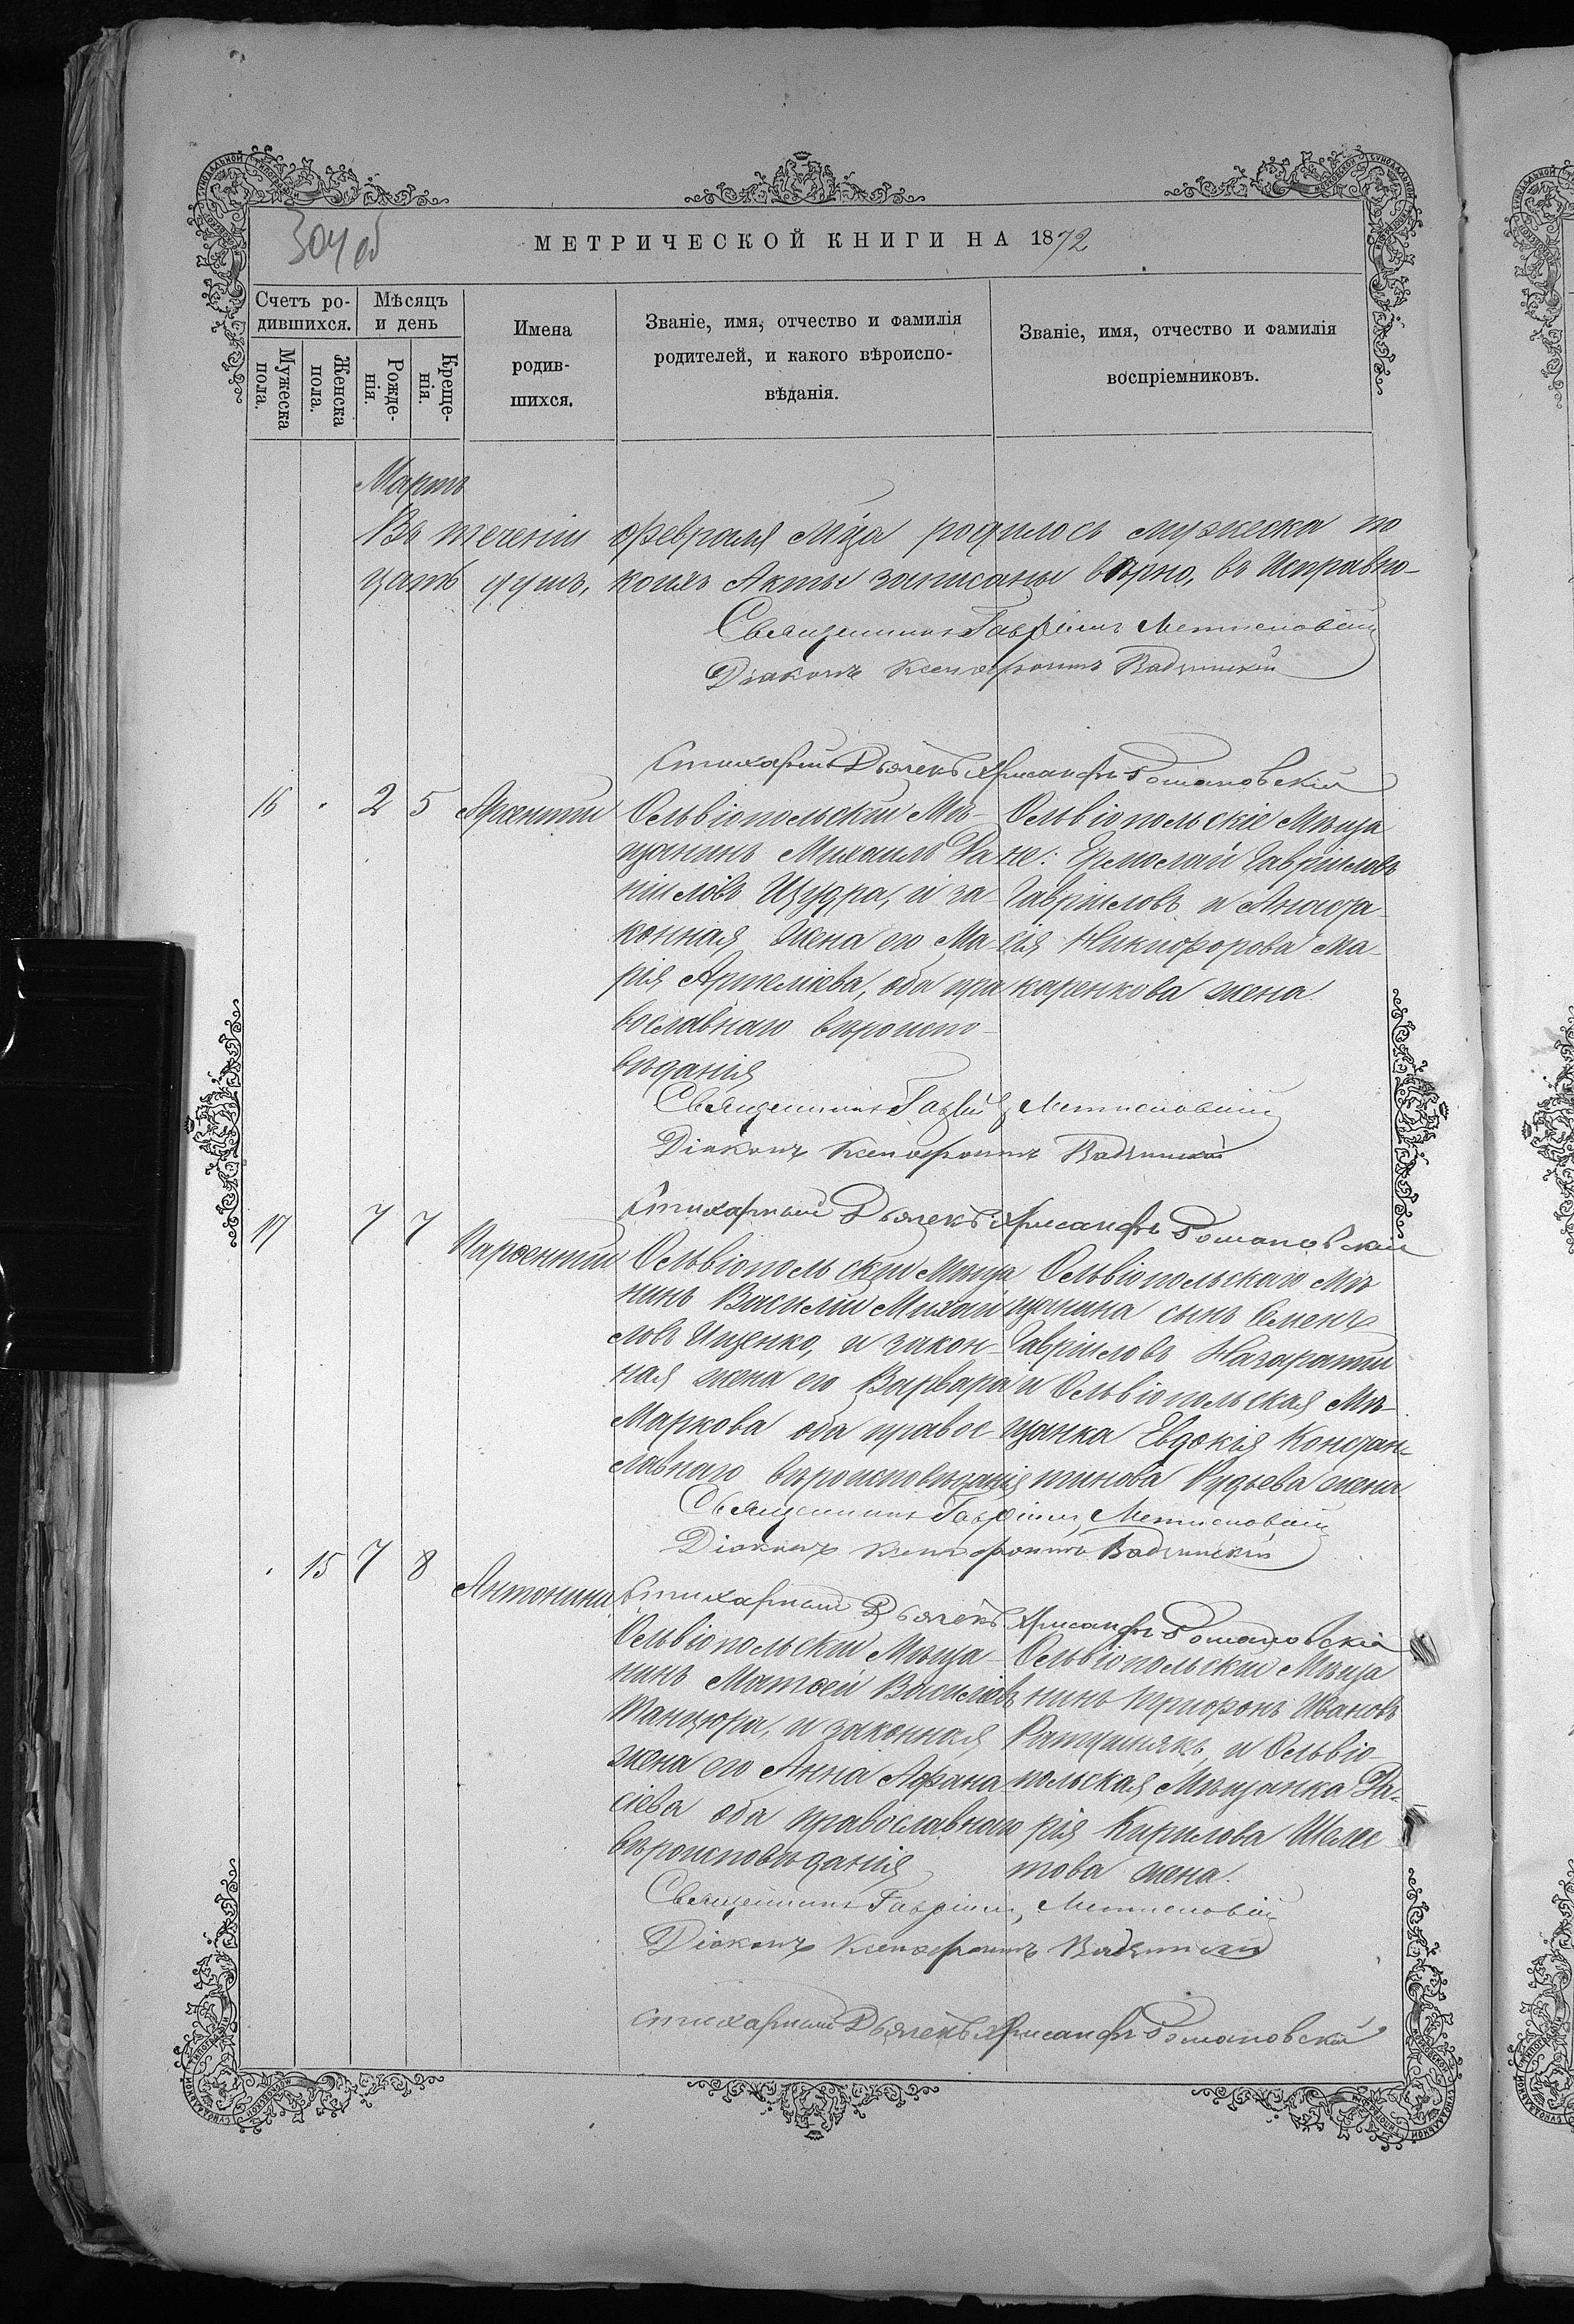 304 об
МЕТРИЧЕСКОЙ КНИГИ НА 1872
Счетъ ро-
дившихся.
Мужеска
пола.
Женска
пола.
Мѣсяцъ
и день
Рожде-
нія.
Креще-
нія.
Имена
родив-
шихся.
Званіе, имя, отчество и фамилія
родителей, и какого вѣроиспо-
вѣданія.
Званіе, имя, отчество и фамилія
воспріемниковъ.
Мартъ
Въ теченіи февраля М-ца родилось мужеска по
душъ, коихъ Акты записаны вѣрно, въ Исправно-
Священникъ Гавріилъ
Діаконъ Ксенофонтъ
Стихарный Дьячекъ Хрисанфъ Романовскій
16 . 2 5
Ольвіопольскій Мѣ-
щанинъ Михаилъ Да
ніиловъ Щудра, и за-
конная жена его Ма-
рія Артеміева, оба пра
вославнаго вѣроиспо-
вѣданія
Ольвіопольскіе Мѣща
не: Ермолай Гавріиловъ
Гавріиловъ и Анаста-
сія Никифорова Ма-
каренкова жена.
Священникъ Гавріилъ
Діаконъ Ксенофонтъ
Стихарный Дьячекъ Хрисанфъ Романовскій
17 7 7 Парѳентій
Ольвіопольскій Мѣща
нинъ Василій Михаи
ловъ Ищенко, и закон-
ная жена его Варвара
Маркова оба правос-
лавнаго вѣроисповѣданія
Ольвіопольскаго Мѣ
щанина сынъ Семенъ
Гавріиловъ
и Ольвіопольская Мѣ-
щанка Евдокія Констан-
тинова Рудьева жена
Священникъ Гавріилъ
Діаконъ Ксенофонтъ
Стихарный Дьячекъ Хрисанфъ Романовскій
. 15 7 8 Антонина
Ольвіопольскій Мѣща-
нинъ Матѳей Василіевъ
Танцюра, и законная
жена его Анна Афана
сіева оба православнаго
вѣроисповѣданія
Ольвіопольскій Мѣща
нинъ Трифонъ Ивановъ
и Ольвіо-
польская Мѣщанка Да-
рія Кирилова Шелес-
това жена.
Священникъ Гавріилъ
Діаконъ Ксенофонтъ
Стихарный Дьячекъ Хрисанфъ Романовскій